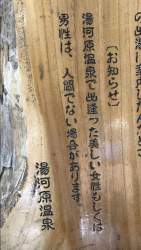 の出湯に来りたんなさ
〔お知らせ〕
湯河原温泉で出逢った美しい女性もしくは
男性は、人間でない場合があります。
湯河原温泉